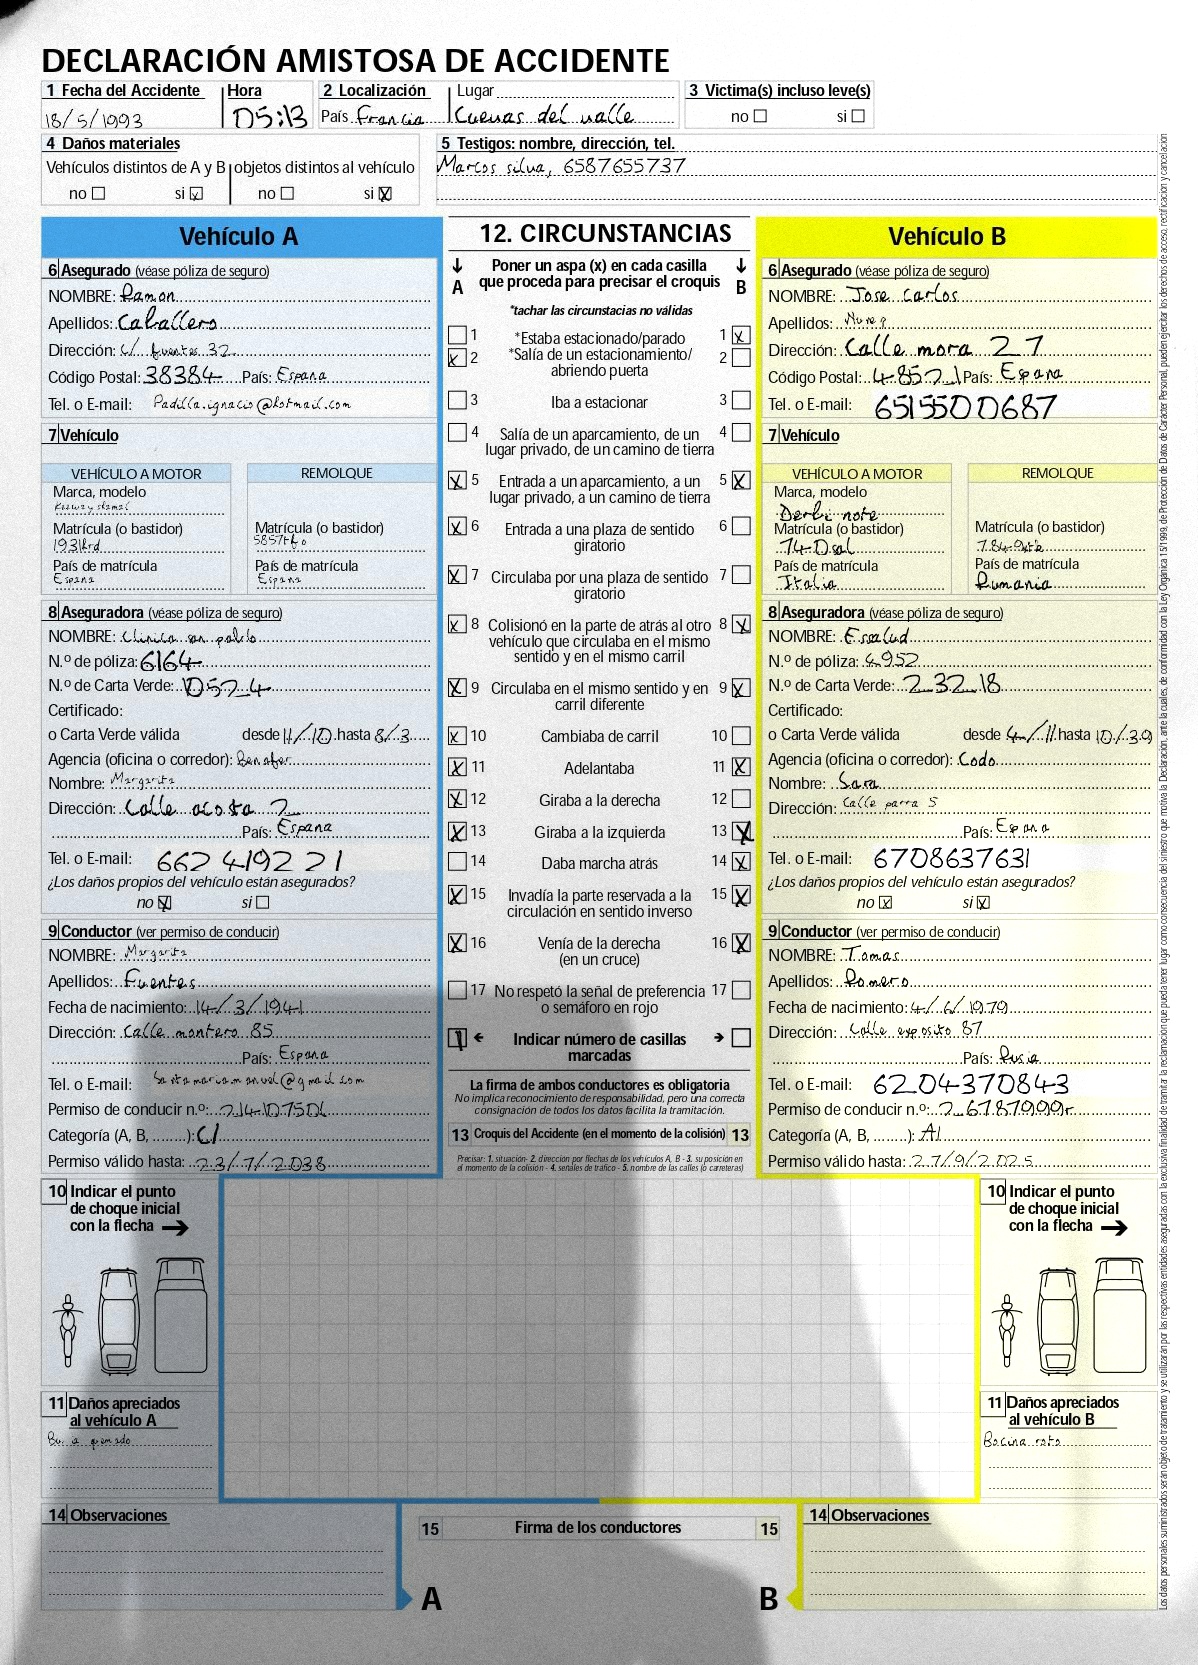 DECLARACIÓN AMISTOSA DE ACCIDENTE
1 Fecha del Accidente Hora 2 Localización Lugar 3 Victima(s) incluso leve(s)
18/5/1993 05:13 País Francia Cuevas del valle no ☐ si ☐
4 Daños materiales 5 Testigos: nombre, dirección, tel.
Vehículos distintos de A y B objetos distintos al vehículo Marcos silva, 6587655737
no ☐ si ☒ no ☐ si ☒
Vehículo A
6 Asegurado (véase póliza de seguro)
NOMBRE: Ramon
Apellidos: Caballero
Dirección: c/ fuentes 32
Código Postal: 38384 País: Espana
Tel. o E-mail: Padilla.ignacio@hotmail.com
7 Vehículo
VEHÍCULO A MOTOR REMOLQUE
Marca, modelo
Matrícula (o bastidor) Matrícula (o bastidor)
País de matrícula País de matrícula
Espana Espana
8 Aseguradora (véase póliza de seguro)
NOMBRE: Clinica san pablo
N.º de póliza: 6164
N.º de Carta Verde: 10524
Certificado:
o Carta Verde válida desde 11/10 hasta 8/3
Agencia (oficina o corredor):
Nombre: Margarita
Dirección: Calle acosta 2
País: Espana
Tel. o E-mail: 662419221
¿Los daños propios del vehículo están asegurados?
no ☒ si ☐
9 Conductor (ver permiso de conducir)
NOMBRE: Margarita
Apellidos: Fuentes
Fecha de nacimiento: 14/3/1941
Dirección: Calle montero 85
País: Espana
Tel. o E-mail: Santamariamanuel@gmail.com
Permiso de conducir n.º:
Categoría (A, B, ........): C1
Permiso válido hasta: 23/7/2038
10 Indicar el punto
de choque inicial
con la flecha
11 Daños apreciados
al vehículo A
quemado
14 Observaciones
12. CIRCUNSTANCIAS
Poner un aspa (x) en cada casilla
A que proceda para precisar el croquis B
*tachar las circunstacias no válidas
☐ 1 *Estaba estacionado/parado 1 ☒
☒ 2 *Salía de un estacionamiento/ 2 ☐
abriendo puerta
☐ 3 Iba a estacionar 3 ☐
☐ 4 Salía de un aparcamiento, de un 4 ☐
lugar privado, de un camino de tierra
☒ 5 Entrada a un aparcamiento, a un 5 ☒
lugar privado, a un camino de tierra
☒ 6 Entrada a una plaza de sentido 6 ☐
giratorio
☒ 7 Circulaba por una plaza de sentido 7 ☐
giratorio
☒ 8 Colisionó en la parte de atrás al otro 8 ☒
vehículo que circulaba en el mismo
sentido y en el mismo carril
☒ 9 Circulaba en el mismo sentido y en 9 ☒
carril diferente
☒ 10 Cambiaba de carril 10 ☐
☒ 11 Adelantaba 11 ☒
☒ 12 Giraba a la derecha 12 ☐
☒ 13 Giraba a la izquierda 13 ☒
☐ 14 Daba marcha atrás 14 ☒
☒ 15 Invadía la parte reservada a la 15 ☒
circulación en sentido inverso
☒ 16 Venía de la derecha 16 ☒
(en un cruce)
☐ 17 No respetó la señal de preferencia 17 ☐
o semáforo en rojo
Indicar número de casillas
marcadas
La firma de ambos conductores es obligatoria
No implica reconocimiento de responsabilidad, pero una correcta
consignación de todos los datos facilita la tramitación.
13 Croquis del Accidente (en el momento de la colisión) 13
Precisar: 1. situación- 2. dirección por flechas de los vehículos A, B - 3. su posición en
el momento de la colisión - 4. señales de tráfico - 5. nombre de las calles (o carreteras)
15 Firma de los conductores 15
A B
Vehículo B
6 Asegurado (véase póliza de seguro)
NOMBRE: Jose carlos
Apellidos:
Dirección: Calle mora 27
Código Postal: 48521 País: Espana
Tel. o E-mail: 6515500687
7 Vehículo
VEHÍCULO A MOTOR REMOLQUE
Marca, modelo
Derbi
Matrícula (o bastidor) Matrícula (o bastidor)
País de matrícula País de matrícula
Italia Rumania
8 Aseguradora (véase póliza de seguro)
NOMBRE: Essalud
N.º de póliza: 4952
N.º de Carta Verde: 23218
Certificado:
o Carta Verde válida desde 4/11 hasta 10/39
Agencia (oficina o corredor): Codo
Nombre: Sara
Dirección: Calle parra 5
País: Espana
Tel. o E-mail: 6708637631
¿Los daños propios del vehículo están asegurados?
no ☒ si ☒
9 Conductor (ver permiso de conducir)
NOMBRE: Tomas
Apellidos: Romero
Fecha de nacimiento: 4/6/1979
Dirección: Calle exposito 87
País: Rusia
Tel. o E-mail: 6204370843
Permiso de conducir n.º: 26787999r
Categoría (A, B, ........): A1
Permiso válido hasta: 27/9/2025
10 Indicar el punto
de choque inicial
con la flecha
11 Daños apreciados
al vehículo B
Bocina rota
14 Observaciones